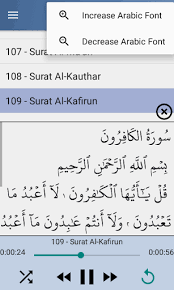 Increase Arabic Font
Decrease Arabic Font
107 - Surat
108 - Surat Al-Kauthar
109 - Surat Al-Kafirun
سُورَةُ الكَافِرُونَ
بِسْمِ اللَّهِ الرَّحْمَٰنِ الرَّحِيمِ
قُلْ يَا أَيُّهَا الْكَافِرُونَ ۝ لَا أَعْبُدُ مَا
تَعْبُدُونَ ۝ وَلَا أَنْتُمْ عَابِدُونَ مَا أَعْبُدُ
109 - Surat Al-Kafirun
0:00:24
0:00:56